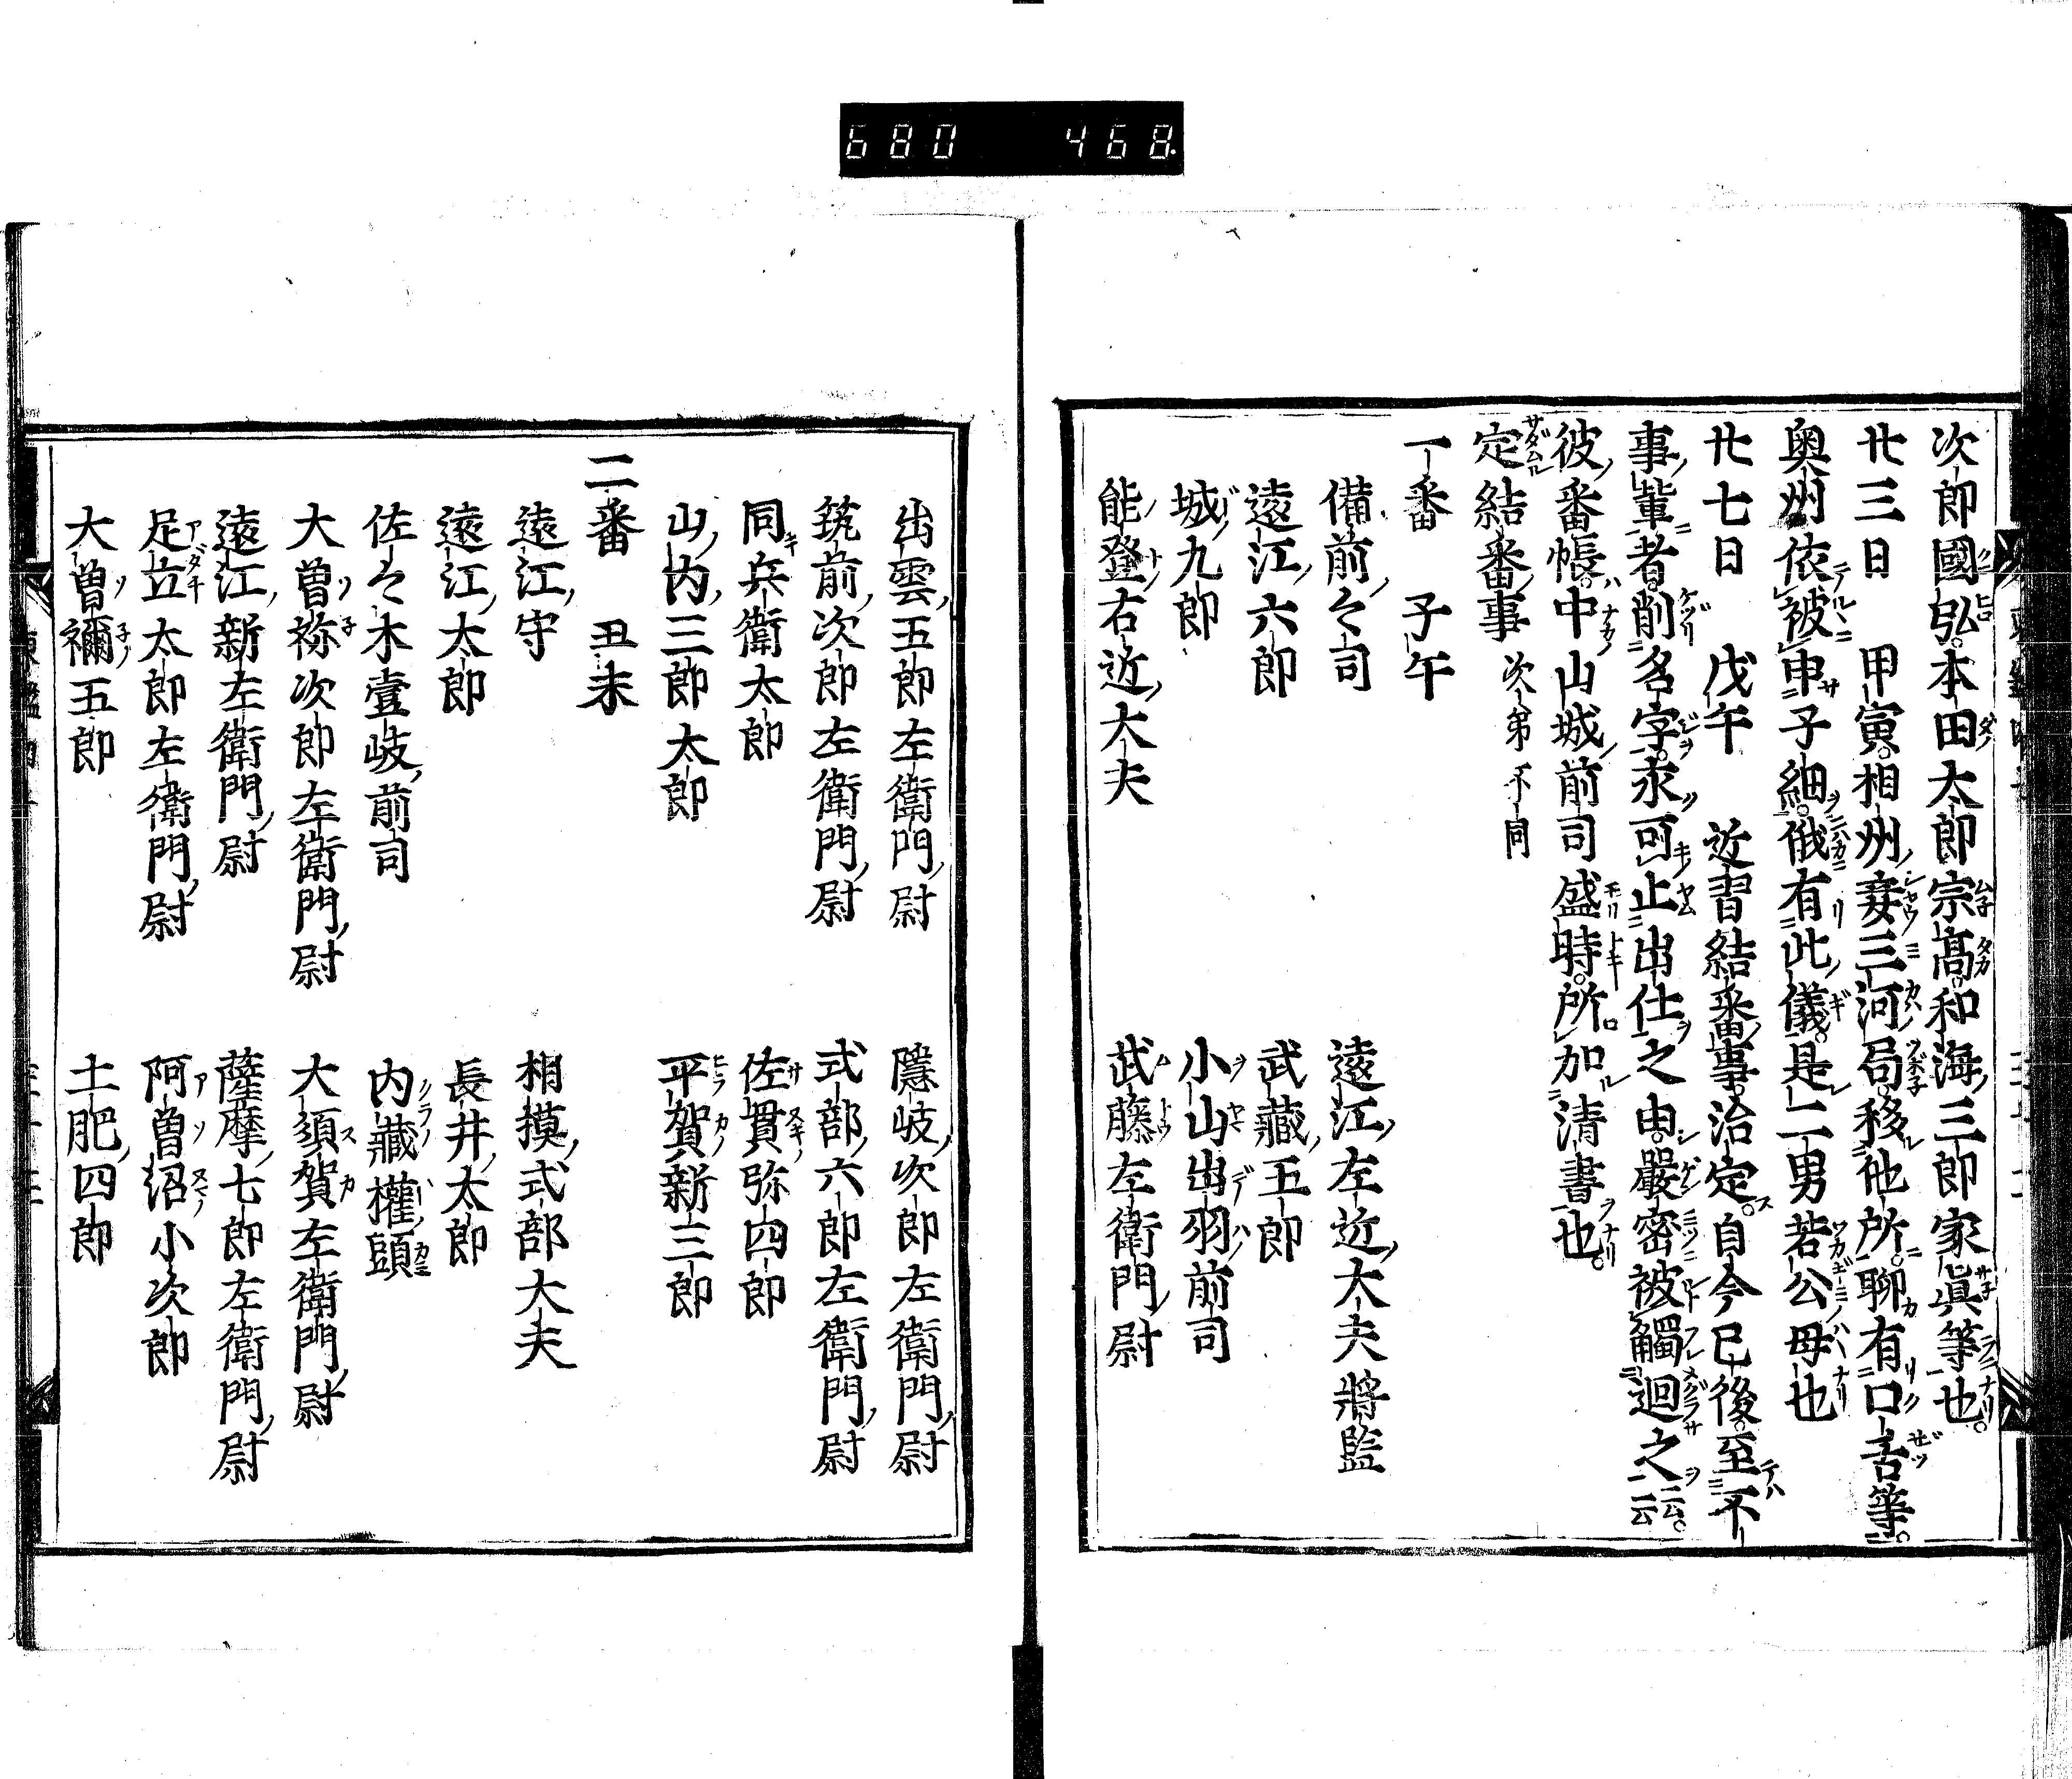 680 468
次郎國弘。本田太郎宗髙。和海三郎家眞等也。
廿三日 甲寅。相州妾三河局。移他所。聊有口舌等。
奥州依被申子細。俄有此儀。是二男若公母也
廿七日 戊午 近習結番事。治定。自今已後。至不
事輩者。削名字。永可止出仕之由。嚴密被觸迴之云云。
彼番帳。中山城前司盛時。所加清書也。
定結番事 次第不同
一番 子午
備前々司 遠江左近大夫將監
遠江六郎 武藏五郎
城九郎 小山出羽前司
能登右近大夫 武藤左衛門尉
出雲五郎左衛門尉 隱岐次郎左衛門尉
筑前次郎左衛門尉 式部六郎左衛門尉
同兵衛太郎 佐貫弥四郎
山内三郎太郎 平賀新三郎
二番 丑未
遠江守 相摸式部大夫
遠江太郎 長井太郎
佐々木壹岐前司 内藏權頭
大曽祢次郎左衛門尉 大須賀左衛門尉
遠江新左衛門尉 薩摩七郎左衛門尉
足立太郎左衛門尉 阿曽沼小次郎
大曽禰五郎 土肥四郎